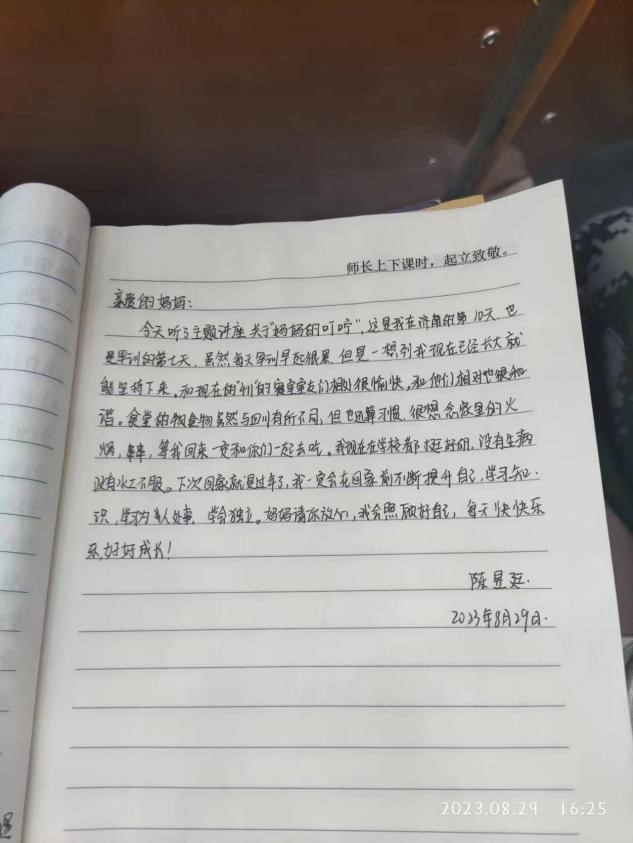 师长上下课时，起立致敬。
亲爱的妈妈：
今天听了主题讲座关于"妈妈的叮咛"，这是我在济南的第10天，也
是军训的第七天，虽然每天军训早起很累，但是一想到我现在已经长大就
能坚持下来。和现在的的寝室室友们相处很愉快，和他们相对也很和
谐。食堂的食物虽然与四川有所不同，但也还算习惯，很想念家里的火
锅，串串，等我回来一定和你们一起去吃。我现在在学校都挺好的，没有生病
没有水土不服。下次回家就是过年了，我一定会在回家前不断提升自己，学习知
识，学习为人处事，学会独立。妈妈请你放心，我会照顾好自己，每天快快乐
乐，好好成长！
陈昱廷.
2023年8月29日.
2023.08.29 16:25